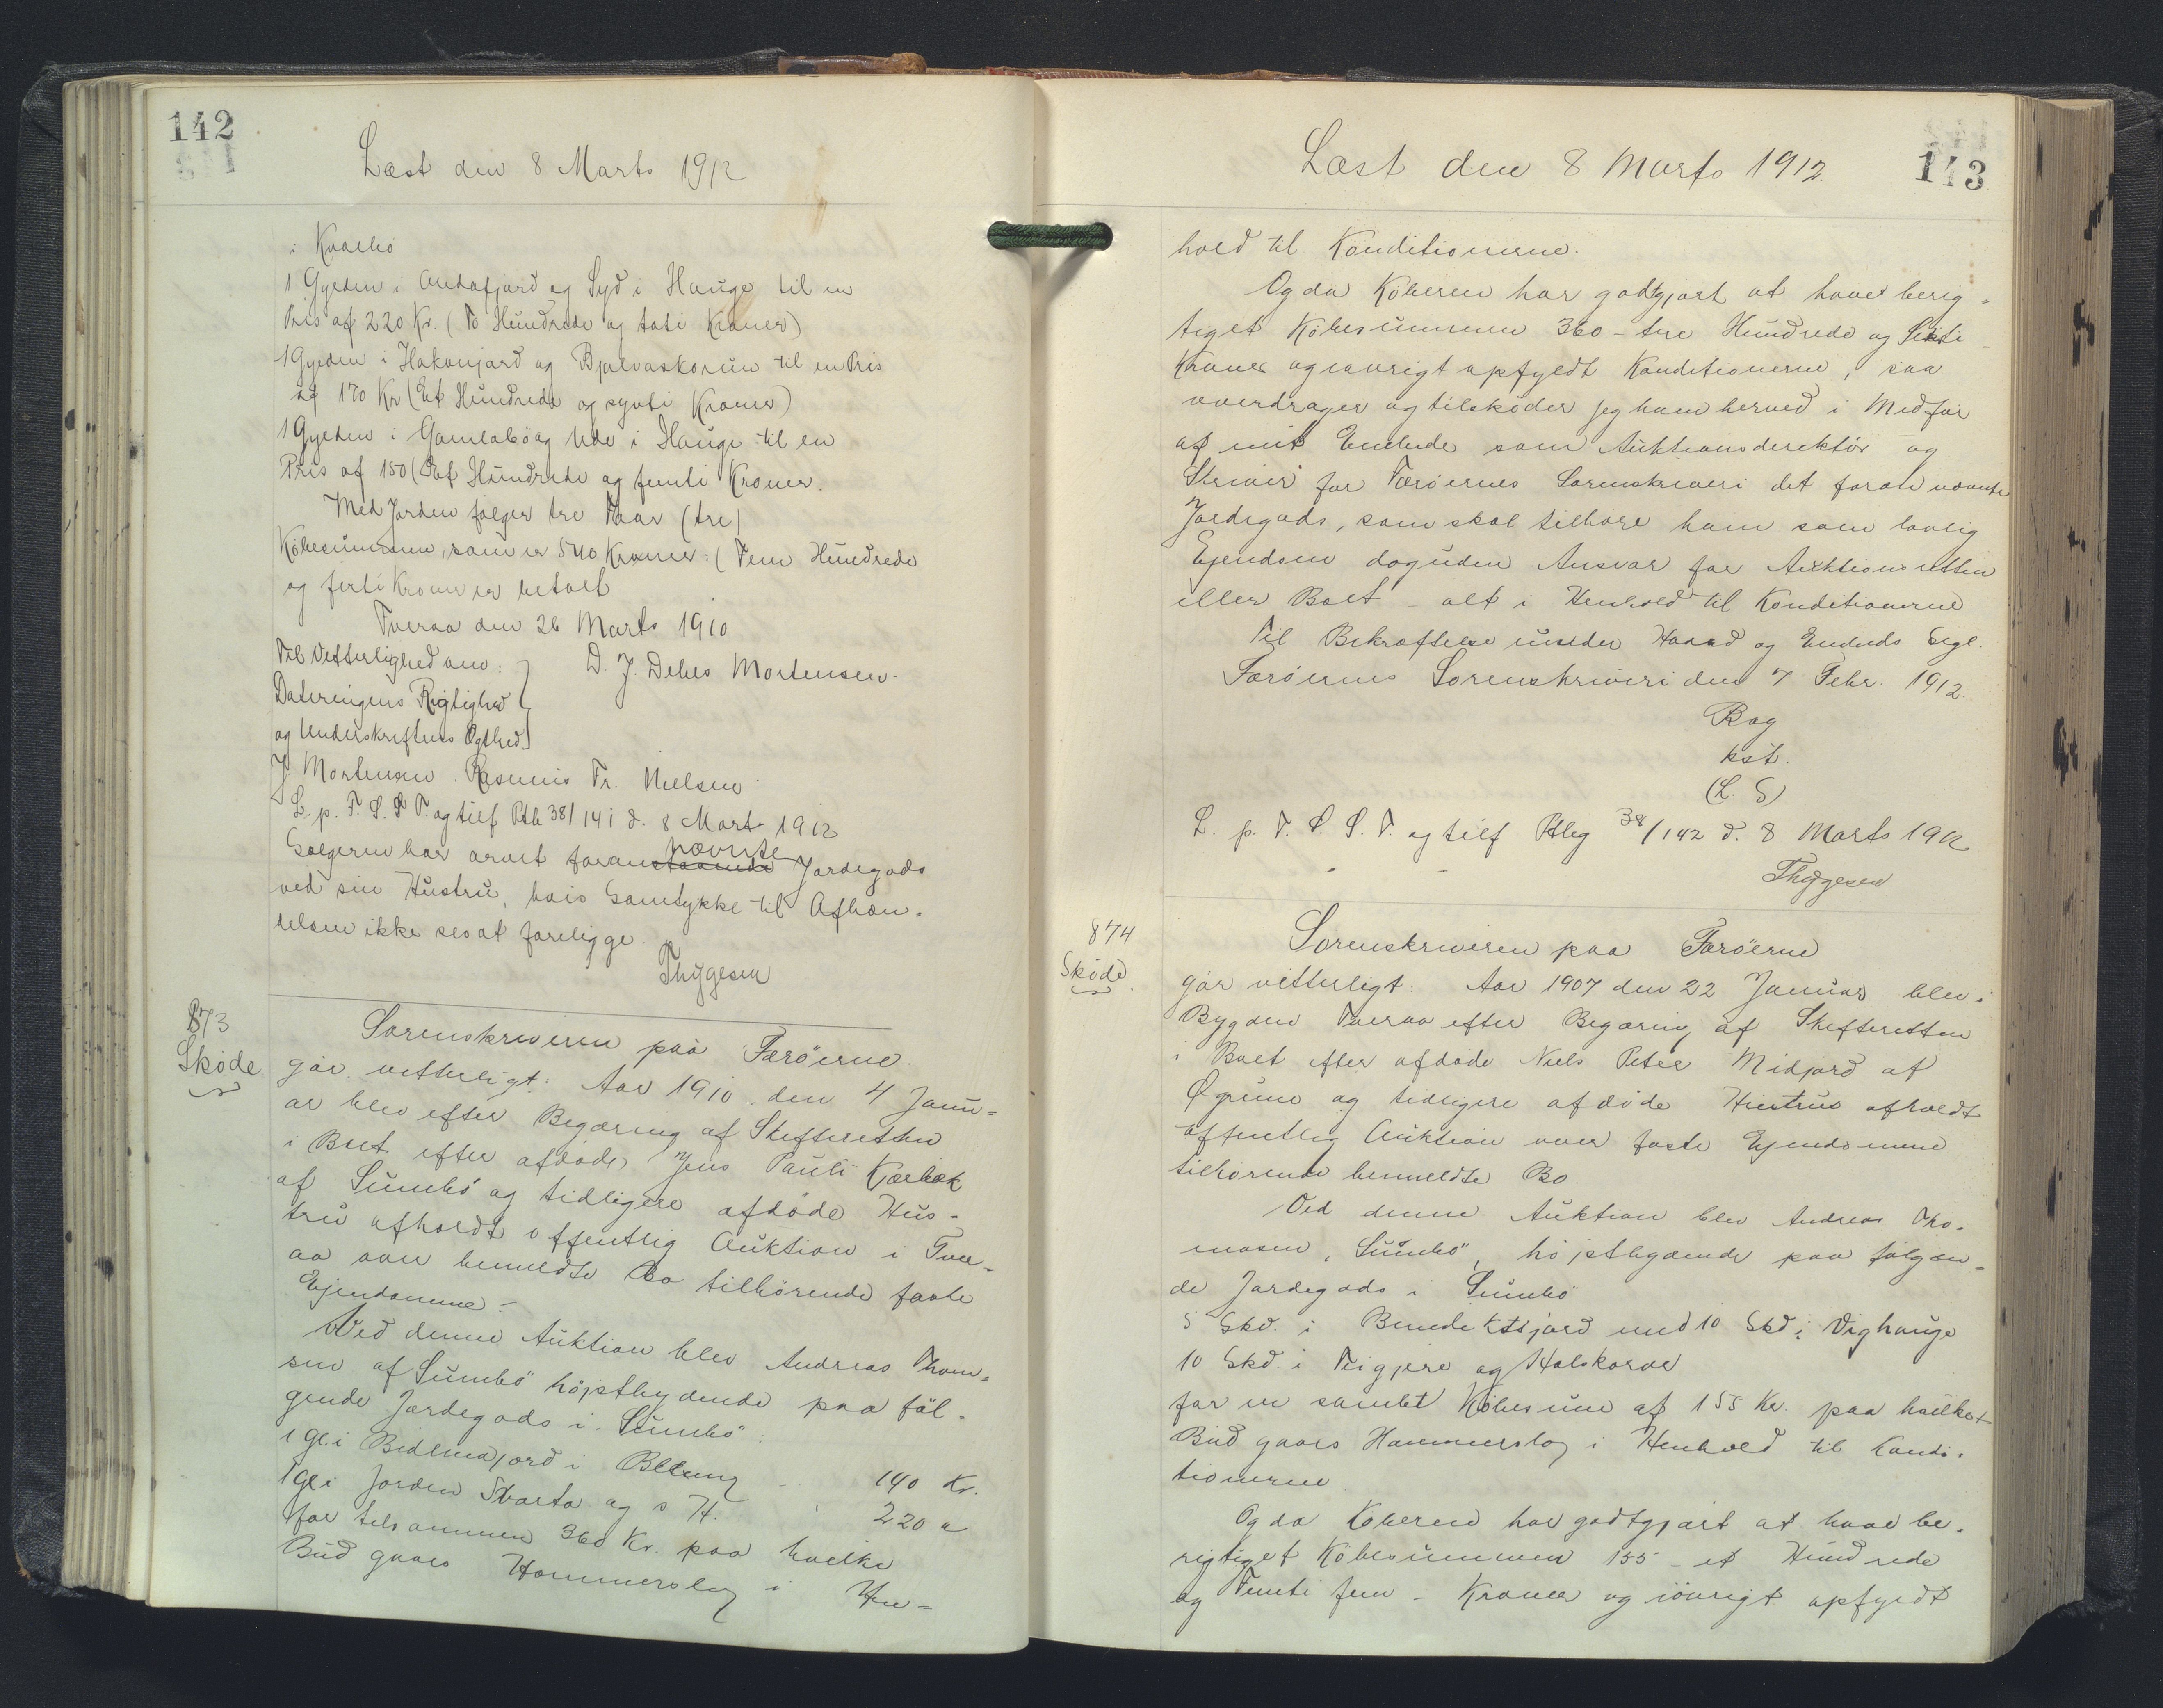 142
Læst den 8 Marts 1912
i Kvalbö
1 Gylden i Andafjord og Syd i Hauge til en
Pris af 220 Kr. (To Hundrede og toti Kroner)
1 Gylden i Hakonjard og Bjalvaskorun til en Pris
af 170 Kr (Et Hundrede og syvti Kroner)
1 Gylden i Gamlabö og Ude i Hauge til en
Pris af 150 (Et Hundrede og femti Kroner.
Med Jorden følger tre Faar (tre)
Köbesummen, som er 540 Kroner: (Fem Hundrede
og firti Kroner er betalt
Tveraa den 26 Marts 1910
Til Vitterlighed om: D. J. Debes Mortensen.
Dateringens Rigtighed
og Underskriftens Ægthed
J. Mortensen. Rasmus Fr. Nielsen
L. p. F. S. S T. og tilf Ptb 38/141 d. 8 Mart 1912
Sælgeren har arvet foranstaaende nævnte Jordegods
ved sin Hustru, hvis Samtykke til Afhæn-
delsen ikke ses at foreligge.
Thygesen
873
Sköde
Sorenskriveren paa Færöerne
gör vitterligt: Aar 1910 den 4 Janu-
ar blev efter Begæring af Skifteretten
i Boet efter afdöde Jens Pauli Kjærbæk
af Sumbö og tidligere afdöde Hus-
tru afholdt offentlig Auktion i Tver-
aa over bemeldte Bo tilhörende faste
Ejendomme.-
Ved denne Auktion blev Andreas Thom-
sen af Sumbö höjstbydende paa föl-
gende Jordegods i Sumbö:
1 Gl. i Bidlinajord i 140 Kr.
1 Gl i Jorden Svarta og s H. 220 "
for tilsammen 360 Kr. paa hvilke
Bud gaves Hammerslag i Hen-
143
Læst den 8 Marts 1912.
hold til Konditionerne.
Og da Köberen har godtgjort at have berig-
tiget Köbesummen 360 - tre Hundrede og Seksti -
Kroner og iøvrigt opfyldt Konditionerne, saa
overdrager og tilsköder jeg ham herved i Medför
af mit Embede som Auktionsdirektör og
Skriver for Færöernes Sorenskriveri det foran nævnte
Jordegods, som skal tilhöre ham som lovlig
Ejendom dog uden Ansvar for Auktionsretten
eller Boet - alt i Henhold til Konditionerne
Til Bekræftelse under Haand og Embeds Segl.
Færöernes Sorenskriveri den 7 Febr. 1912.
Bag
kst.
(L. S)
L. p. F. S. S. T. og tilf Ptbg 38/142 d. 8 Marts 1912
Thygesen
874
Sköde.
Sorenskriveren paa Færöerne
gör vitterligt: Aar 1907 den 22 Januar blev i
Bygden Tveraa efter Begæring af Skifteretten
i Boet efter afdöde Niels Peter Midjord af
Øprune og tidligere afdöde Hustru afholdt
offentlig Auktion over faste Ejendomme
tilhörende bemeldte Bo.
Ved denne Auktion blev Andreas Tho-
masen, Sumbö, höjstbydende paa fölgen-
de Jordegods i Sumbö
5 Skd. i Benediktsjord und 10 Skd i Vighauge
10 Skd. i Teigjere og Halskorve
for en samlet Köbesum af 155 Kr. paa hvilket
Bud gaves Hammerslag i Henhold til Kondi-
tionerne
Og da Köberen har godtgjort at have be-
rigtiget Köbesummen 155 - et Hundrede
og Femti fem - Kroner og iövrigt opfyldt